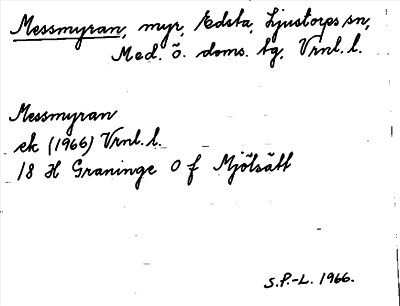 Messmyran, myr, Edsta, Ljustorps sn,
Med. ö. doms. tg, Vrnl. l.
Messmyran
ek (1966) Vrnl. l.
18 H Graninge 0 f Mjölsätt
S.P.-L. 1966.